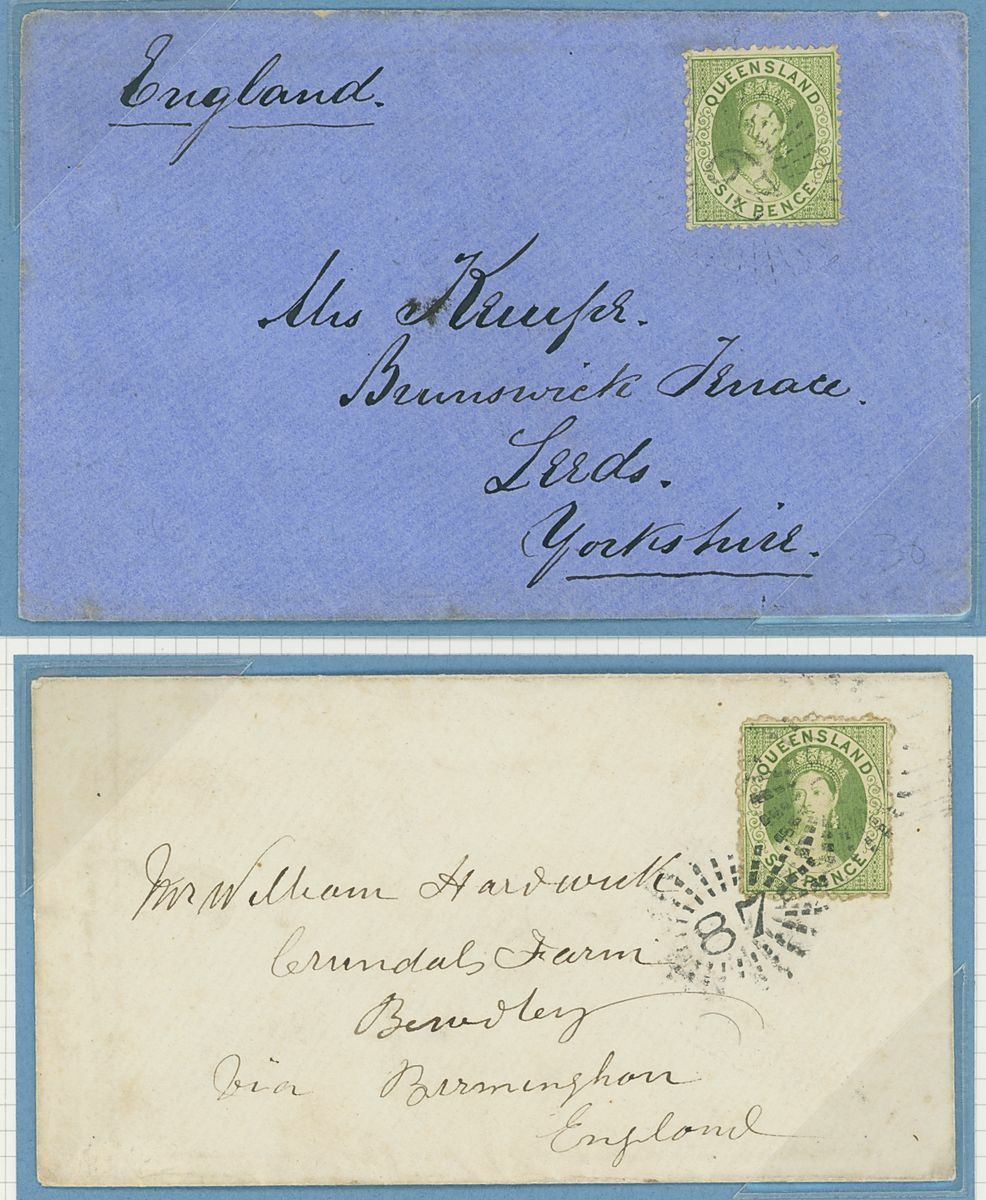 England.
QUEENSLAND
SIX PENCE
Mrs Kempe.
Brunswick Terrace.
Leeds.
Yorkshire.
30
QUEENSLAND
SIX PENCE
Mr William Hardwick
87
Crundals Farm
Bewdley
Via Birmingham
England